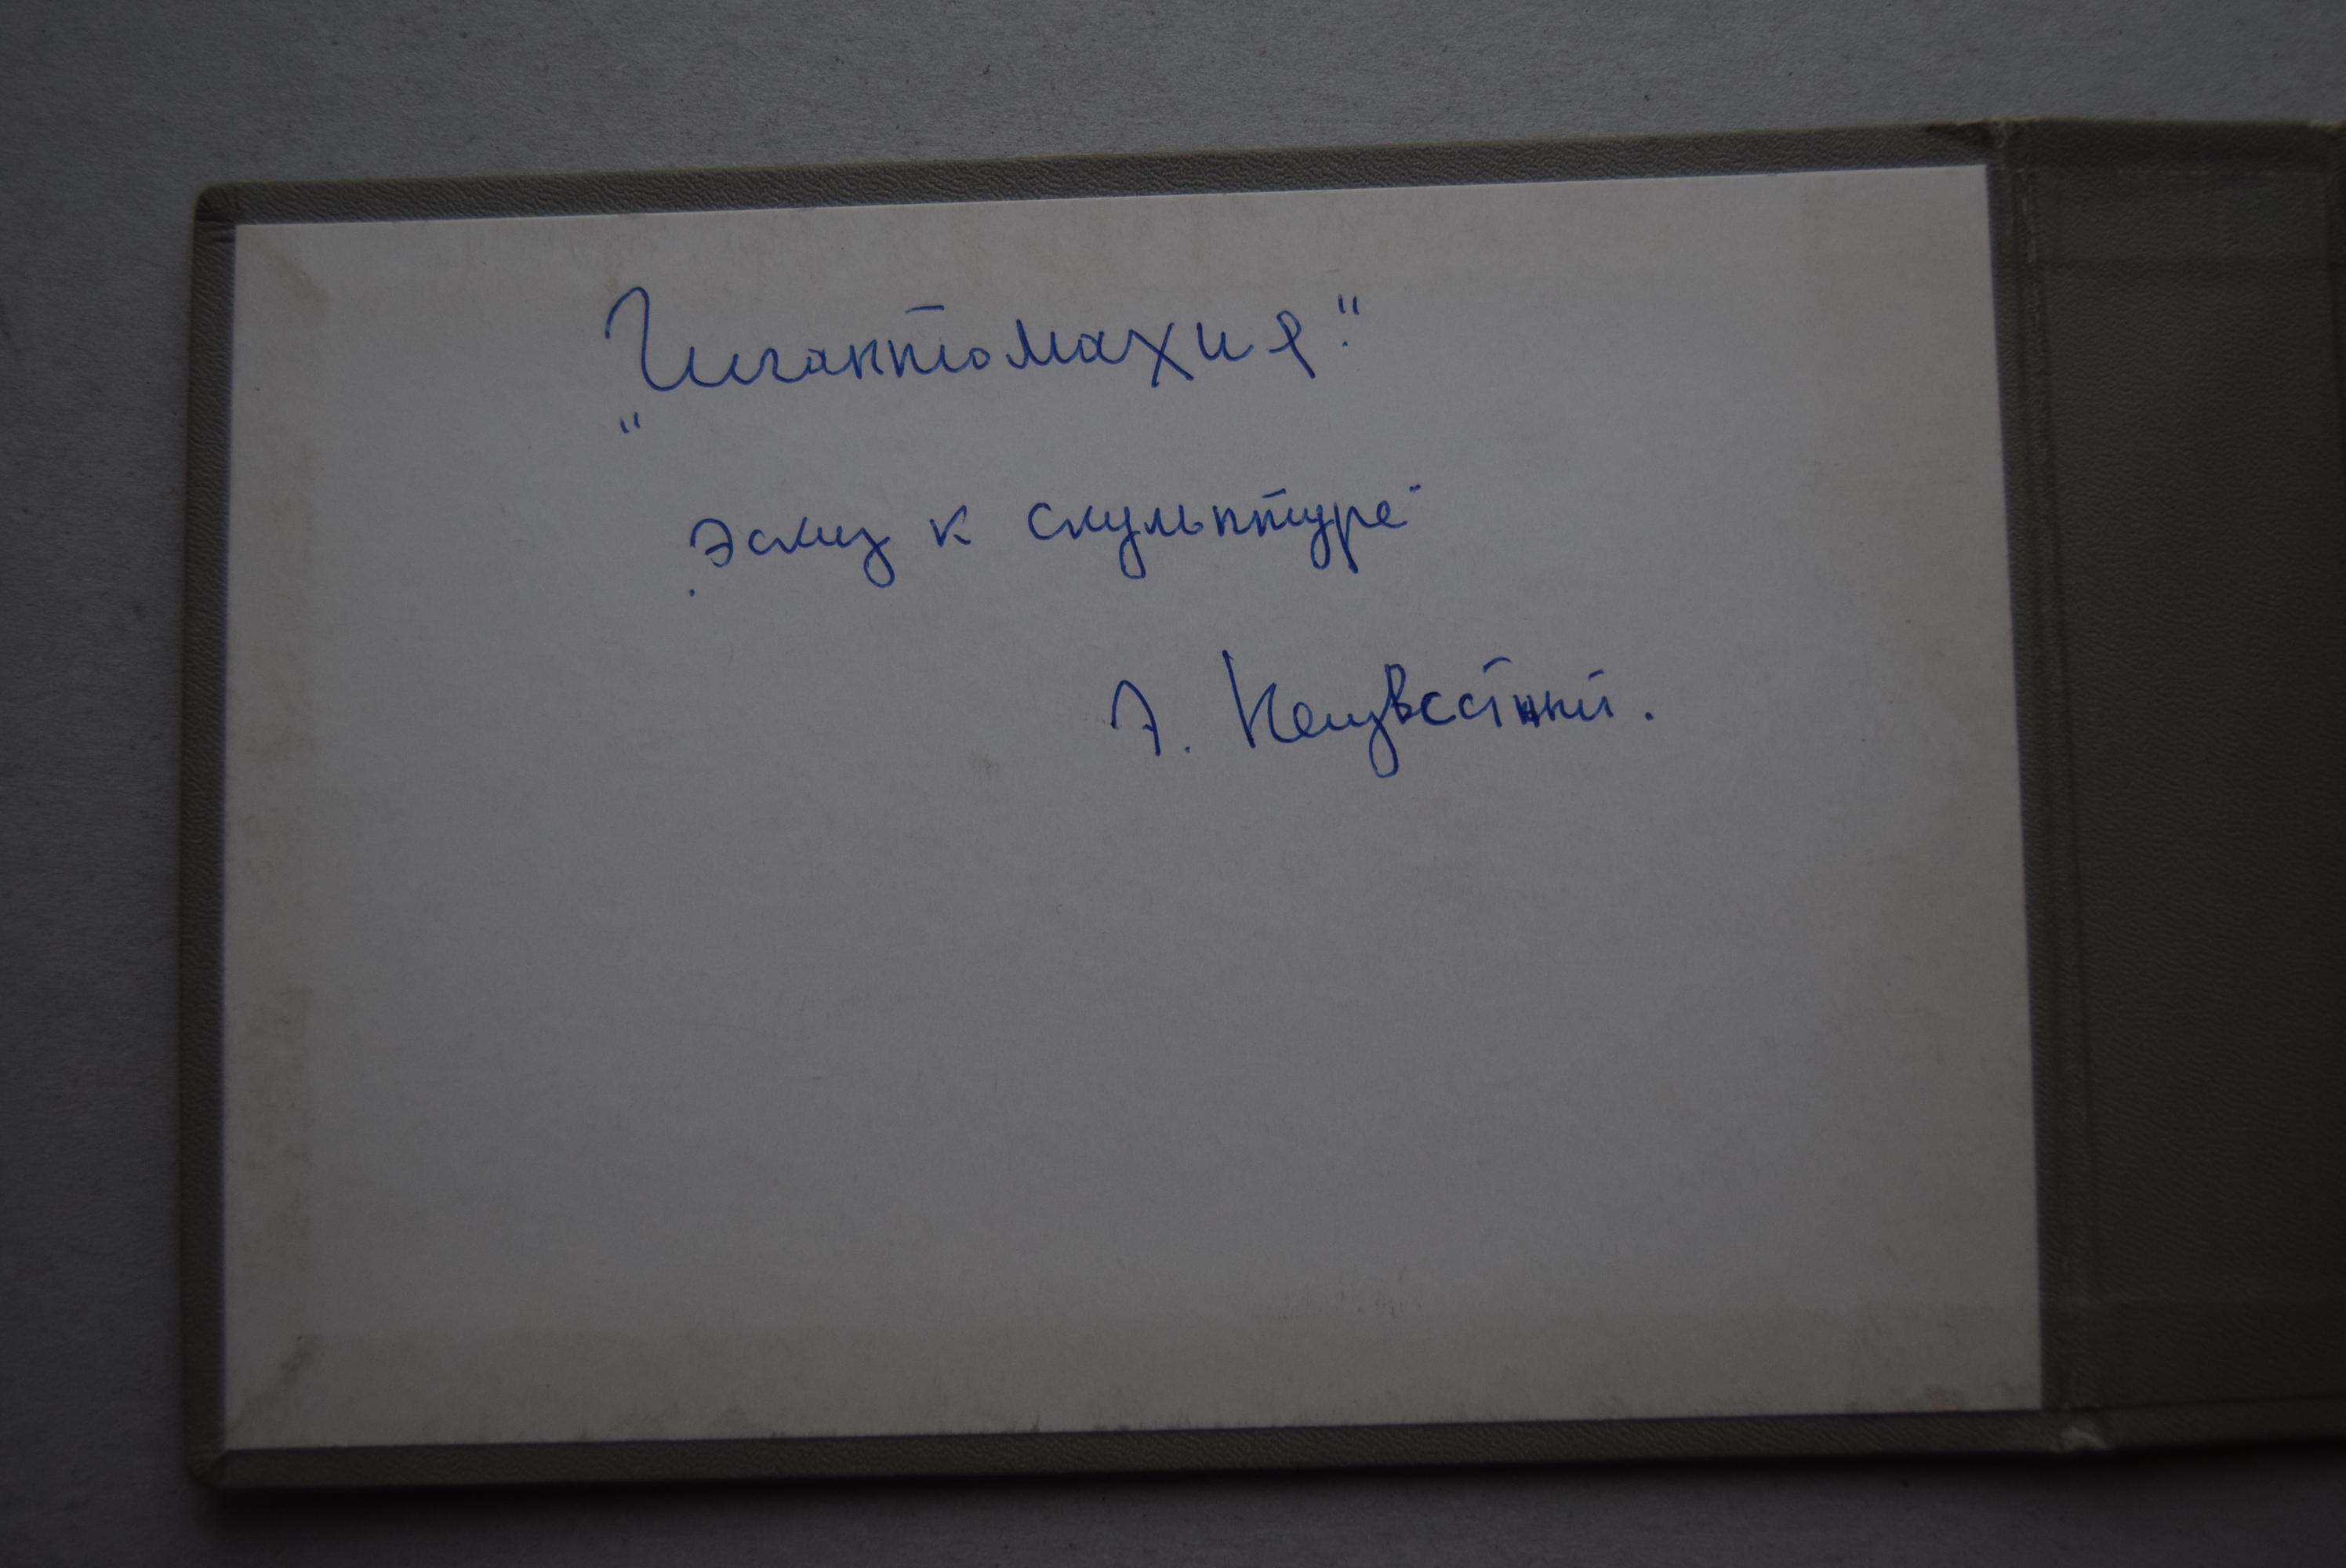 „Гигантомахия."
эскиз к скульптуре
Э. Неизвестный.